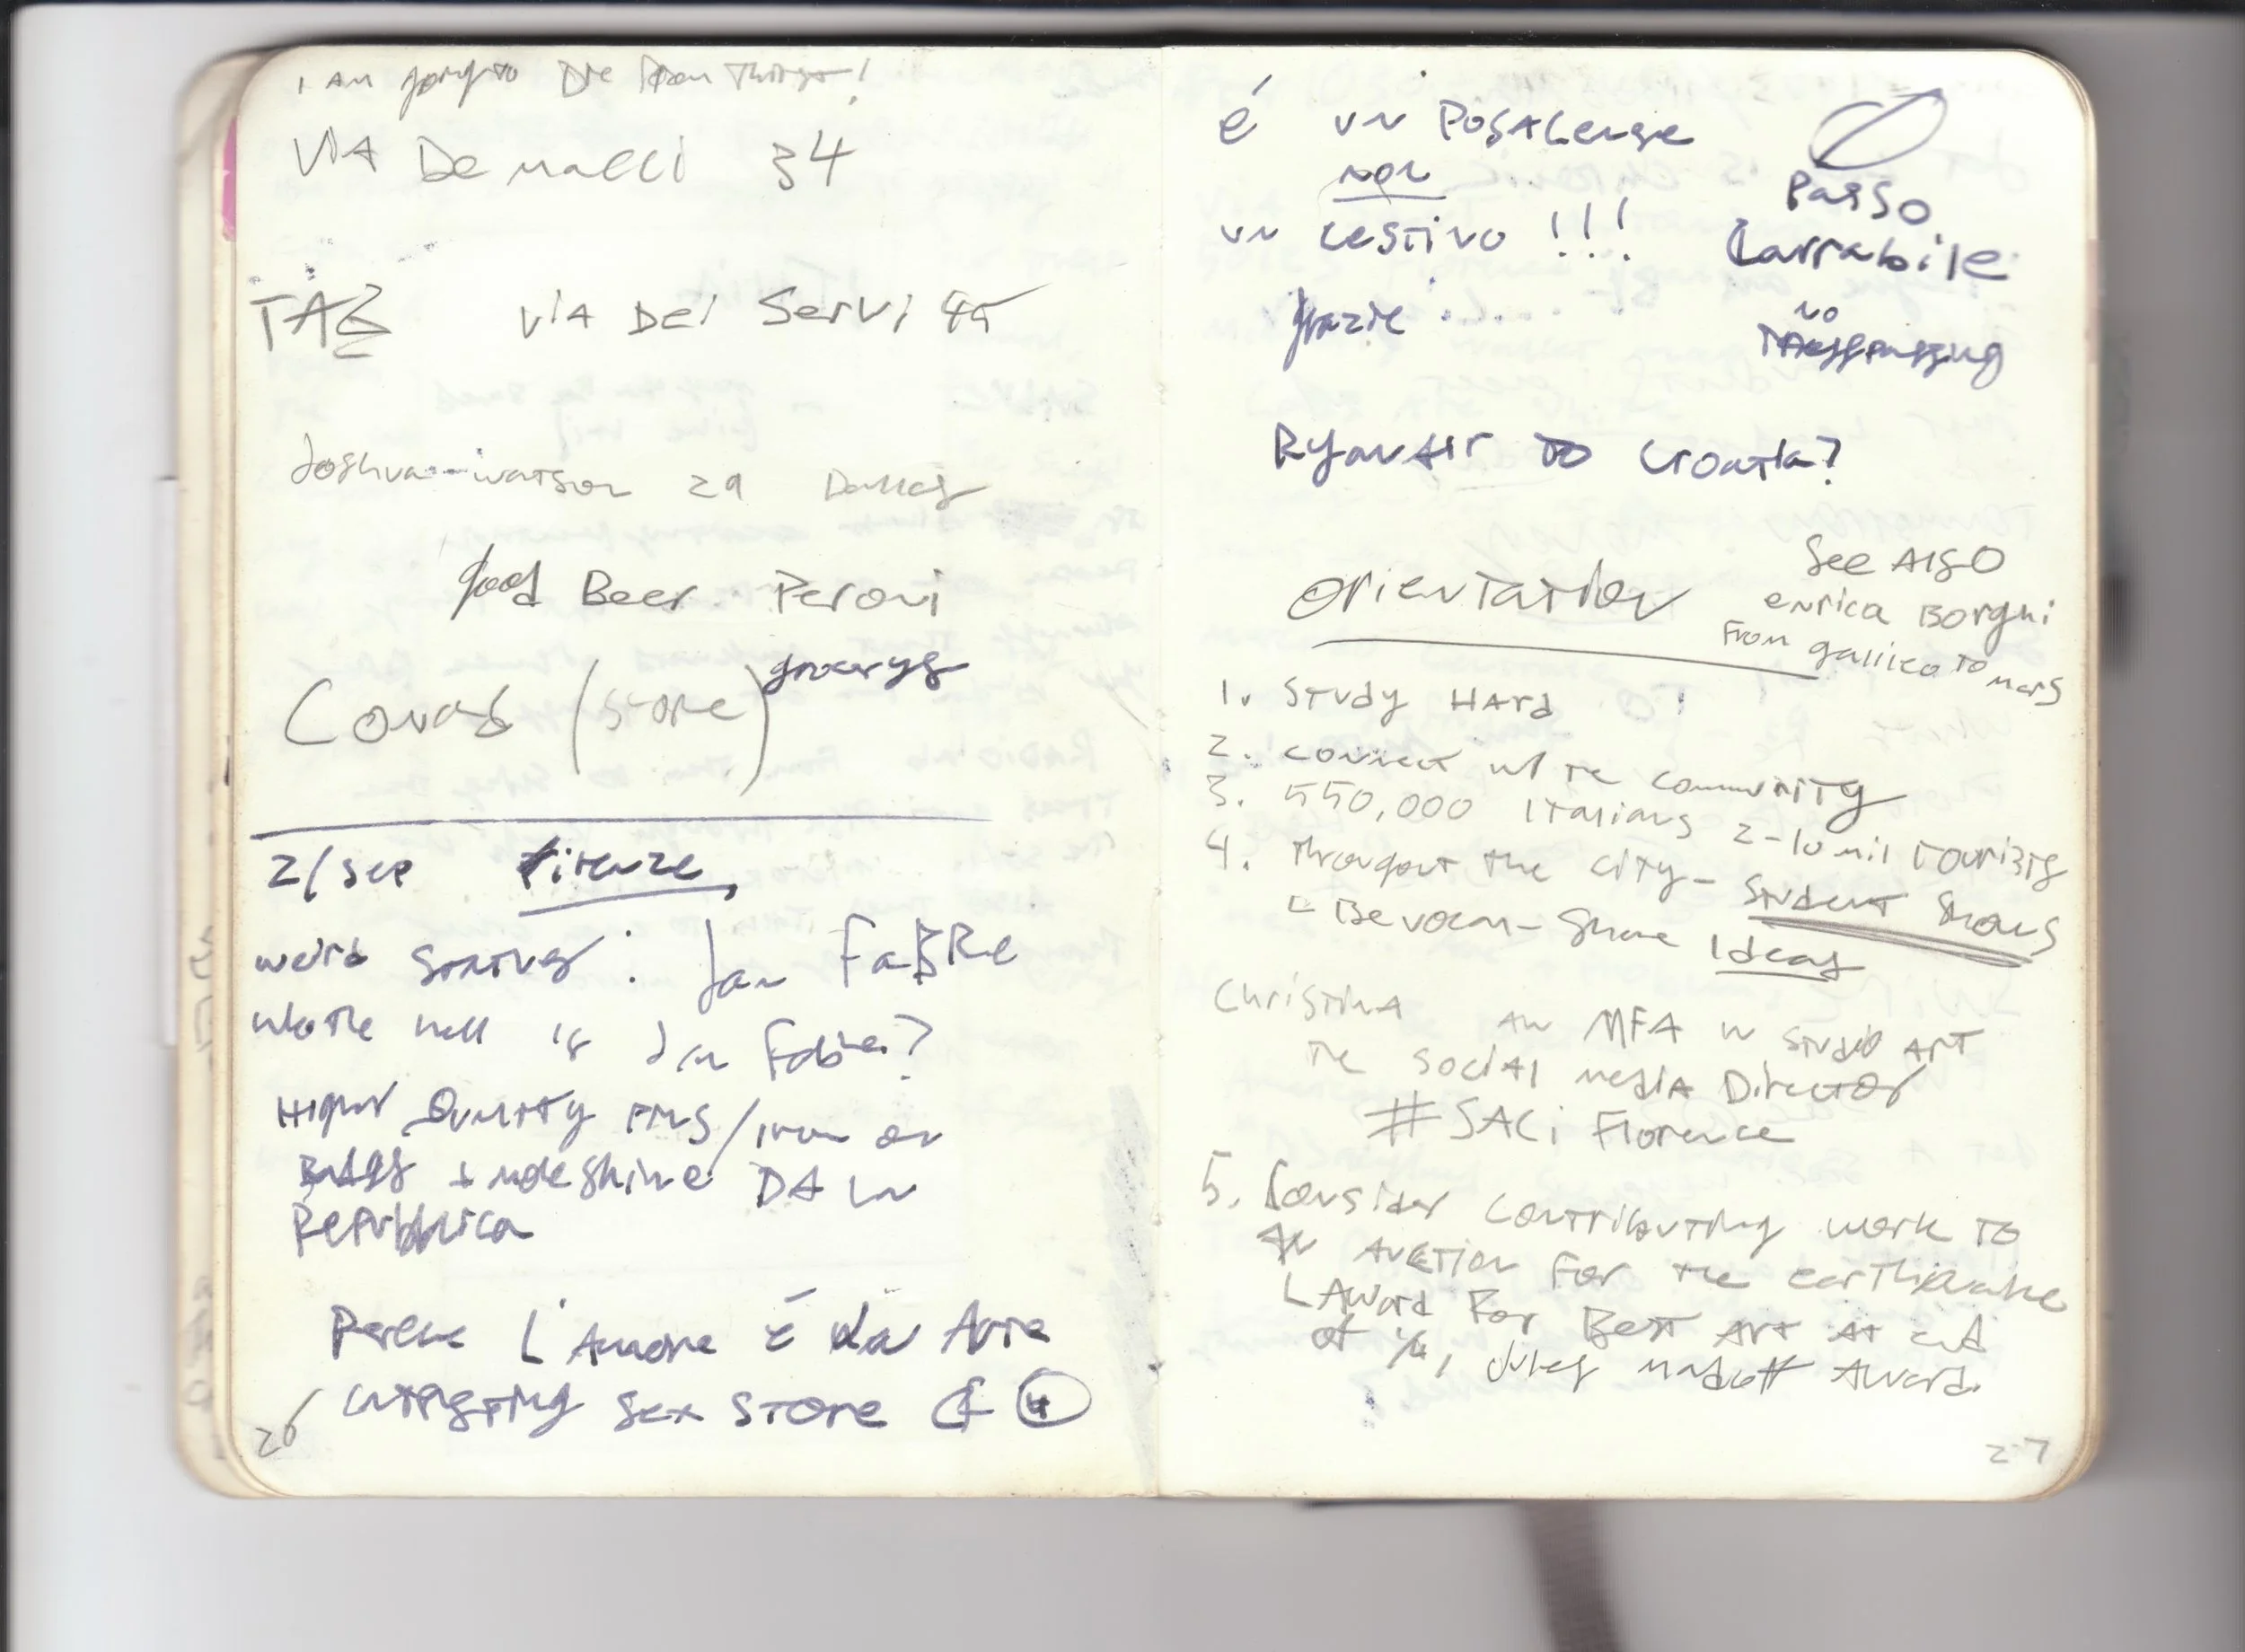 I AM going to Die from Thirst!
VIA De macci 34
TAZ VIA Dei Servi 45
Joshua watson 29 Dallas
good Beer Peroni
Conad (store) grocerys
2/Sep Firenze,
weird statues: Jan FaBRe
who the hell is Jan Fabre?
Higher Quality Pins/iron on
Badges + moleskine DA La
Repubblica
Perche L'Amore é da Arte
intresting sex store
26
é un PosAcenere
non
un cestino !!!
grazie
Passo
Carrabile
no
Tresspassing
RyanAir to Croatia?
Orientation
See AlSO
enrica Borghi
From galileo to mars
1. STUdy HArd
2. connect w/ the community
3. 550,000 Italians 2-10 mil tourists
4. Throughout the city- Student Shows
Be vocal- Share Ideas
Christina AN MFA in studio ART
The Social media Director
#SACi Florence
5. Consider contributing work to
An Auction for the earthquake
Award For Best Art At end
of Jules Maidoff Award.
27